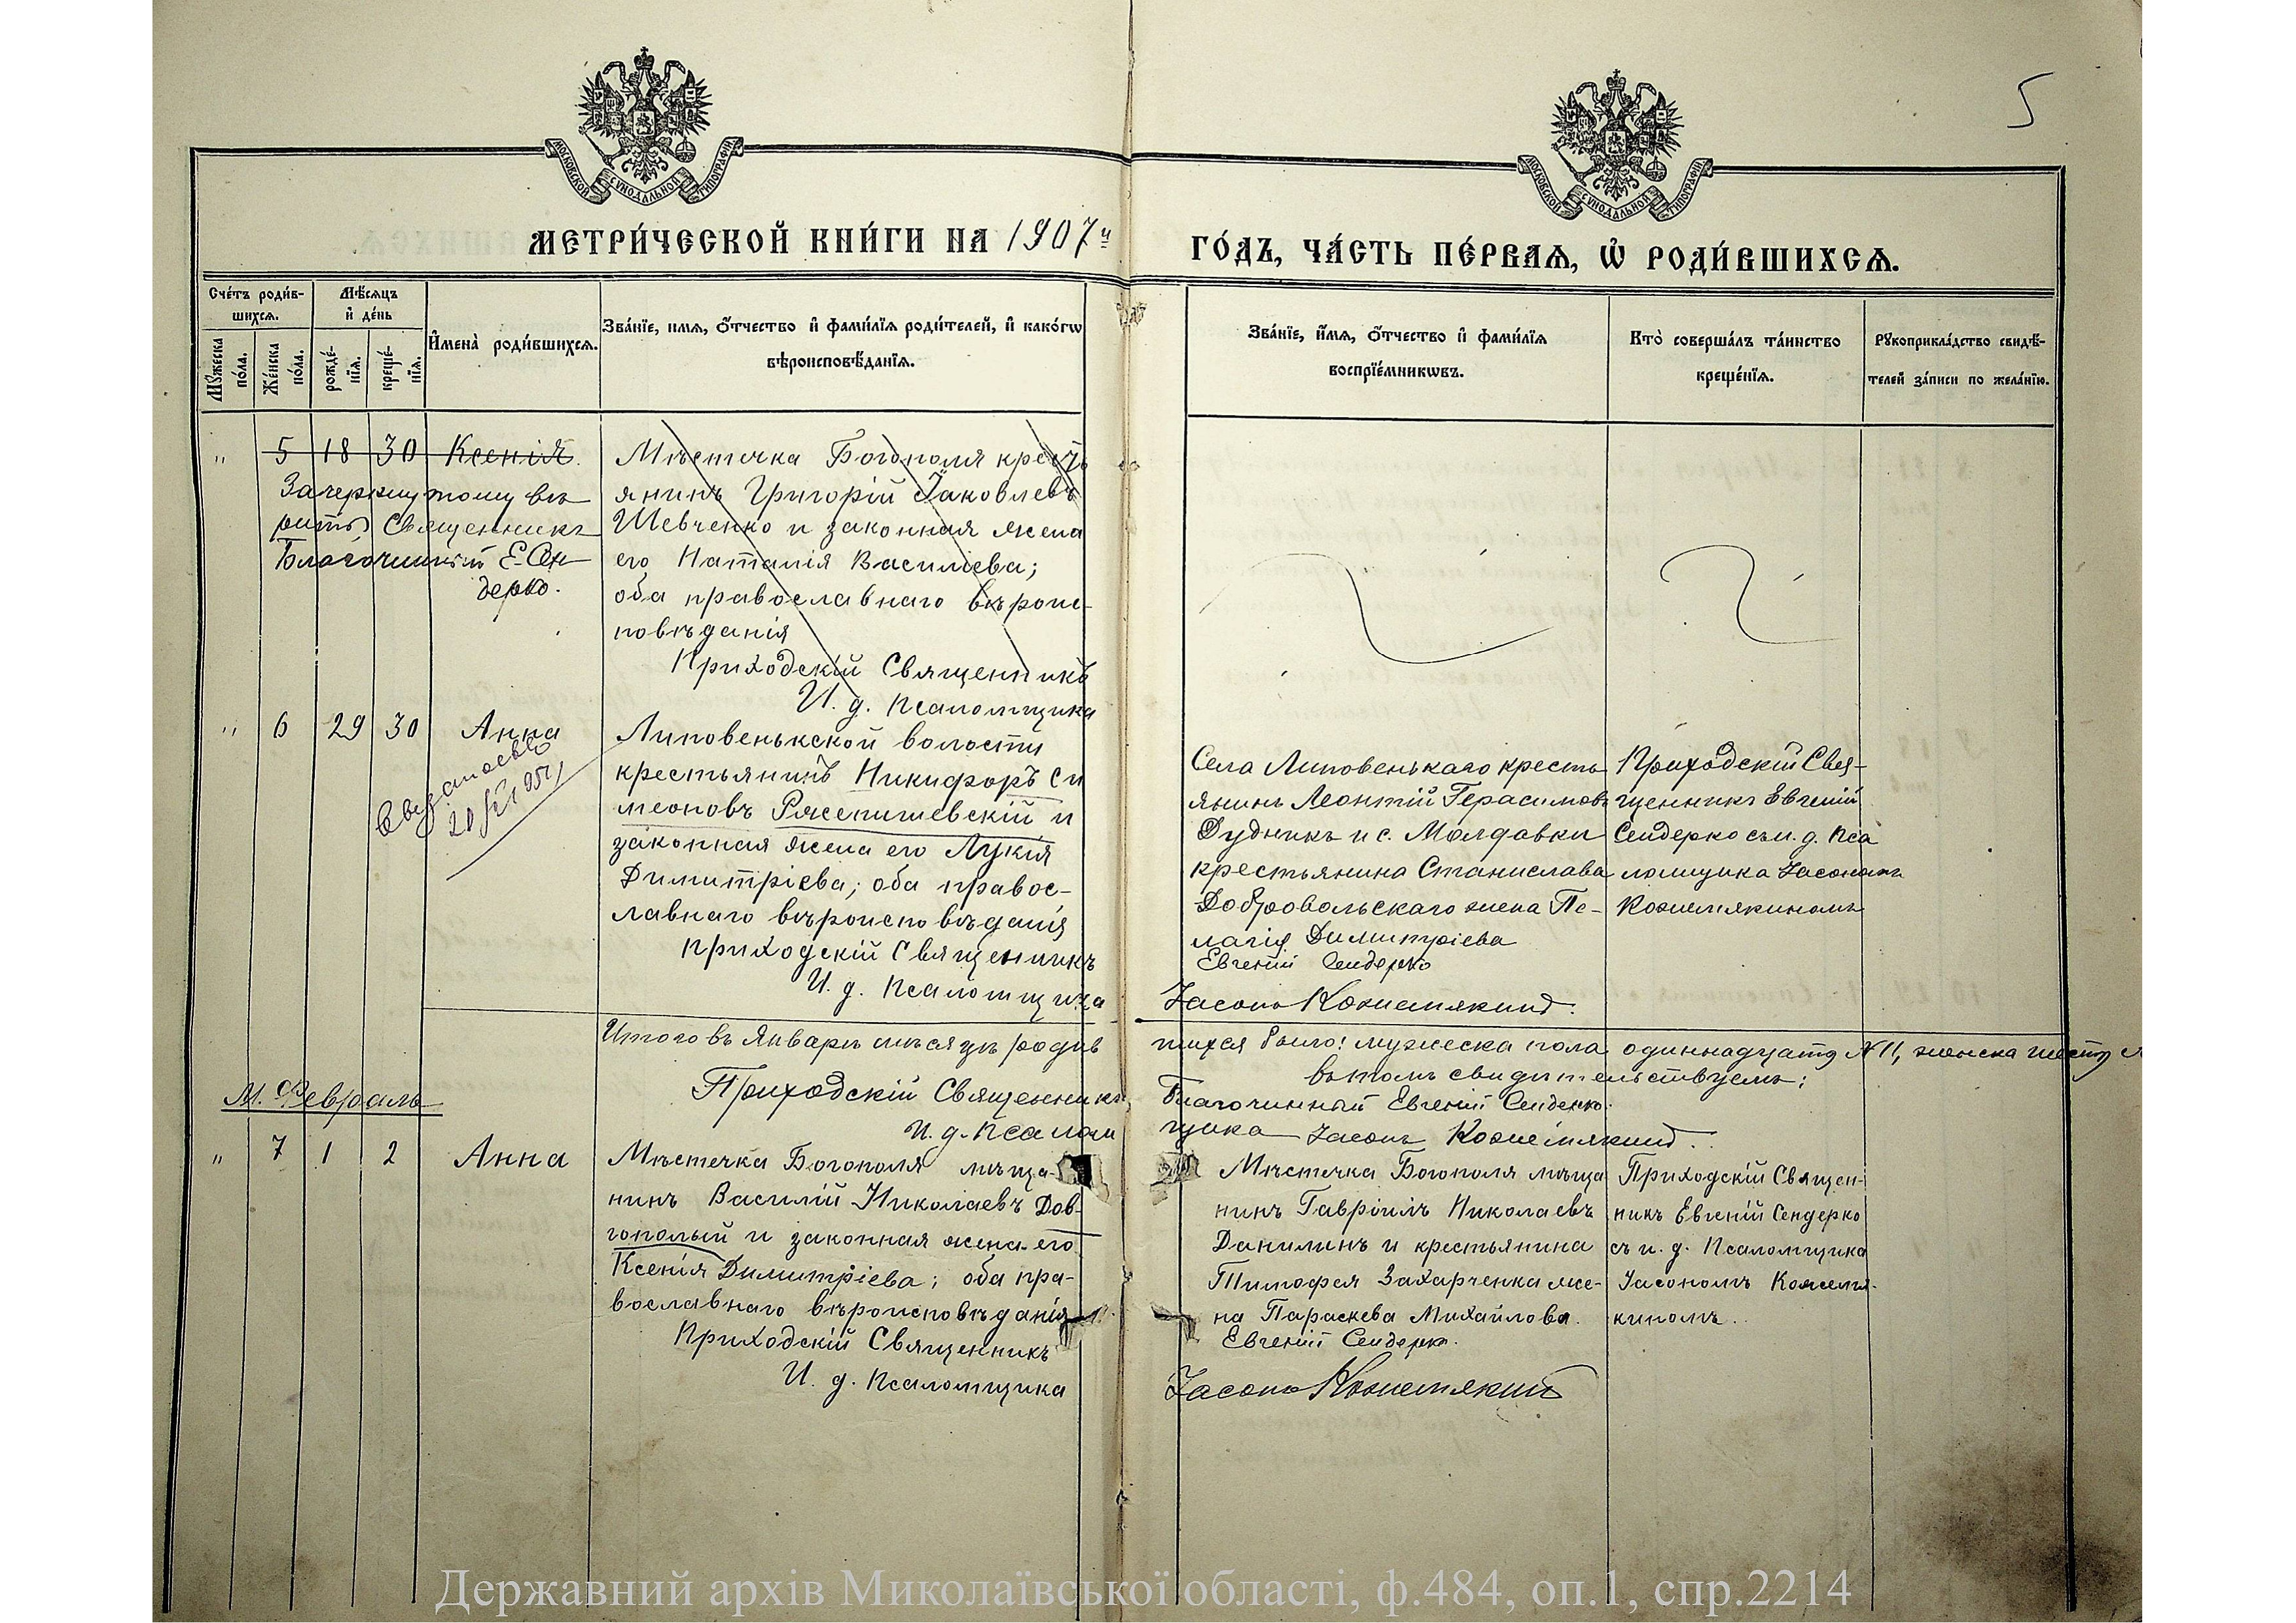 МОСКОВСКОЙ СѴНОДАЛЬНОЙ ТИПОГРАФІИ
МОСКОВСКОЙ СѴНОДАЛЬНОЙ ТИПОГРАФІИ
5
МЕТРИ́ЧЕСКОЙ КНИ́ГИ НА 1907й
ГО́ДЪ, ЧА́СТЬ ПЕ́РВАѦ, Ѡ҆ РОДИ́ВШИХСѦ.
Сче́тъ роди́в-
шихсѧ.
Мѣ́сѧцъ
и҆ де́нь
Мꙋ́жеска по́ла.
Же́нска по́ла.
рожде́-нїѧ.
креще́-нїѧ.
И҆мена̀ роди́вшихсѧ.
Зва́нїе, имѧ, ѻ҆́тчество и҆ фами́лїѧ роди́телей, и҆ како́гѡ
вѣроисповѣ́данїѧ.
Зва́нїе, и҆́мѧ, ѻ҆́тчество и҆ фами́лїѧ
воспрїе́мникѡвъ.
Кто̀ соверша́лъ та́инство
креще́нїѧ.
Рꙋкоприкла́дство свидѣ́-
телей за́писи по жела́нїю.
" 5 18 30 Ксенія.
Зачеркнутому вѣ
рить Священникъ
Благочинный Е. Сен
дерко.
Мѣстечка Богополя кресть
янинъ Григорій Іаковлевъ
Шевченко и законная жена
его Наталія Василіева;
оба православнаго вѣроис-
повѣданія
Приходскій Священникъ
И. д. Псаломщика
" 6 29 30 Анна
Липовенькской волости
крестьянинъ Никифоръ Си
меоновъ Рясенишевскій и
законная жена его Лукія
Димитріева; оба правос-
лавнаго вѣроисповѣданія
Приходскій Священникъ
И. д. Псаломщика
Села Липовенькаго кресть
янинъ Леонтій Герасимовъ
Дудникъ и с. Молдавки
крестьянина Станислава
Добровольскаго жена Пе-
лагія Димитріева
Евгеній Сендерко
Іасонъ Кожемякинъ.
Приходскій Свя-
щенникъ Евгеній
Сендерко съ и. д. Пса
ломщика Іасономъ
Кожемякиномъ
Итого въ Январѣ мѣсяцѣ родив
шихся было: мужеска пола одиннадцать № 11, женска шесть
въ томъ свидѣтельствуемъ:
Приходскій Священникъ,
Благочинный Евгеній Сендерко.
И. д. Псалом
щика Іасонъ Кожемякинъ.
М. Февраль
" 7 1 2 Анна
Мѣстечка Богополя мѣща-
нинъ Василій Николаевъ Дов-
гополый и законная жена его
Ксенія Димитріева; оба пра-
вославнаго вѣроисповѣданія
Приходскій Священникъ
И. д. Псаломщика
Мѣстечка Богополя мѣща
нинъ Гавріилъ Николаевъ
Данилинъ и крестьянина
Тимофея Захарченка же-
на Параскева Михайлова.
Евгеній Сендерко.
Іасонъ Кожемякинъ
Приходскій Священ-
никъ Евгеній Сендерко
съ и. д. Псаломщика
Іасономъ Кожемя-
киномъ.
Державний архів Миколаївської області, ф.484, оп.1, спр.2214